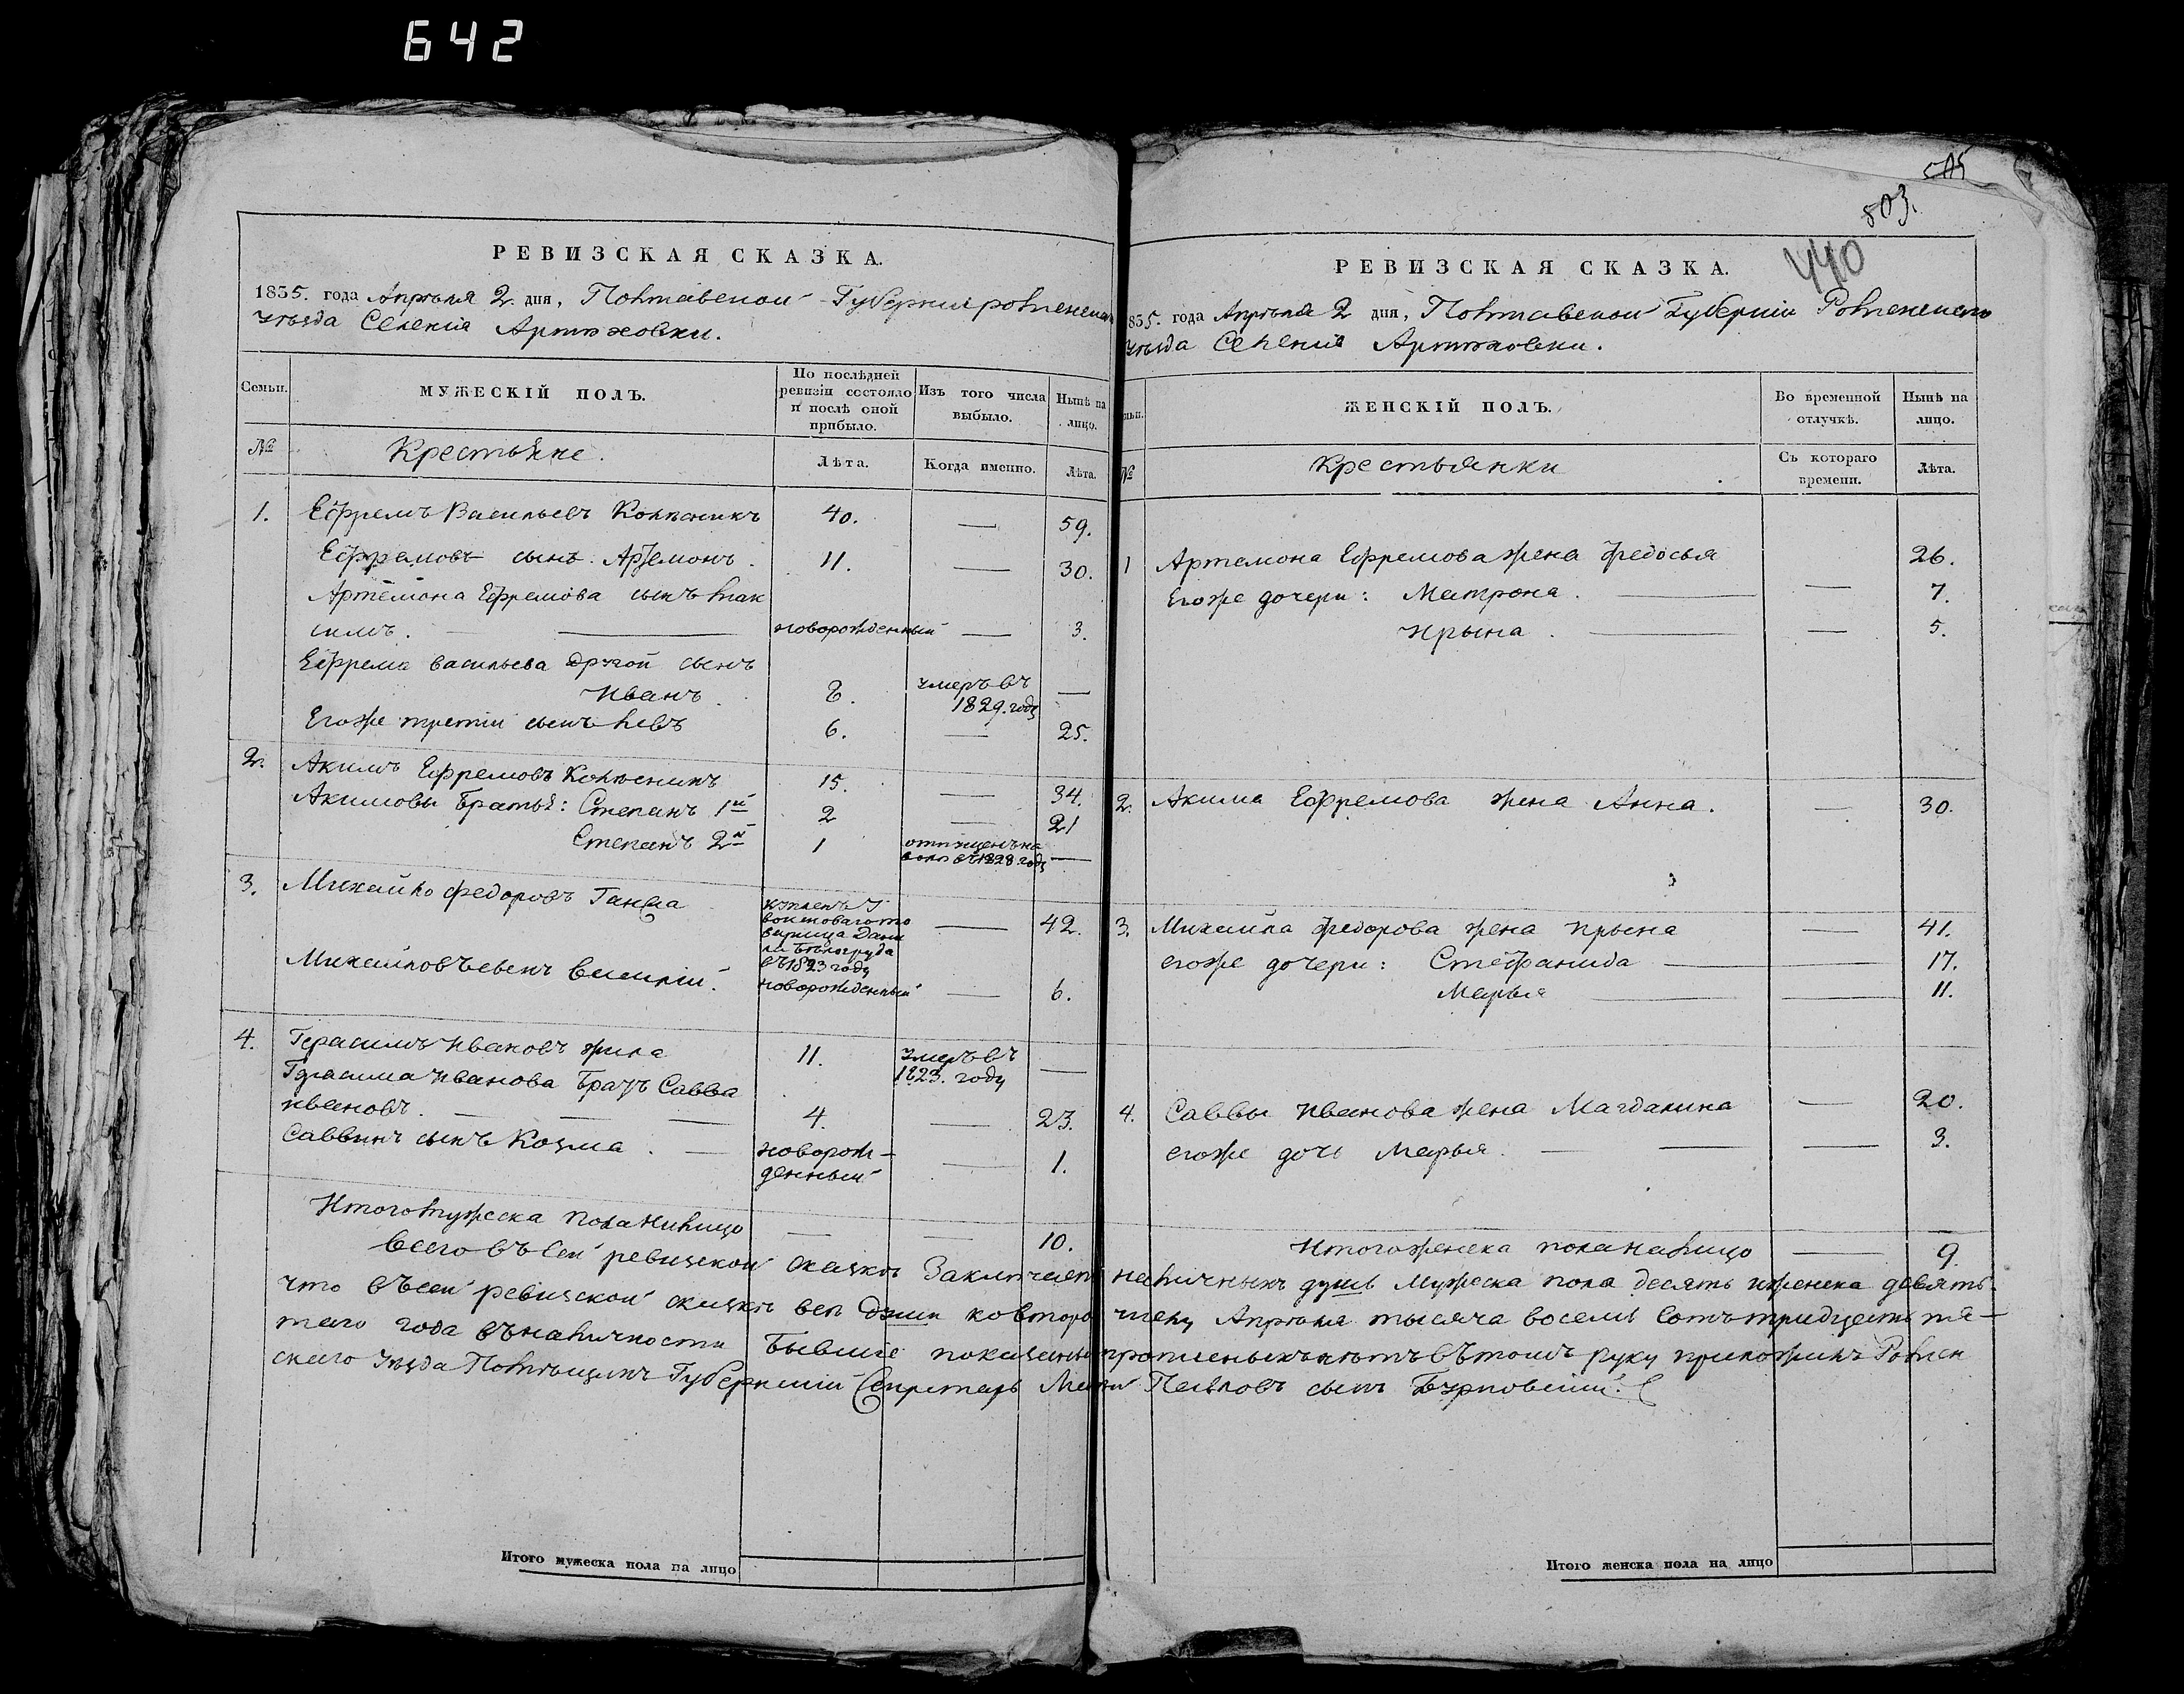 642
РЕВИЗСКАЯ СКАЗКА.
1835. года Апрѣля 2. дня, Полтавской Губерніи роменскаго
уѣзда Селенія Артюховки.
Семьи.
МУЖЕСКІЙ ПОЛЪ.
По послѣдней ревизіи состояло и послѣ оной прибыло.
Изъ того числа выбыло.
Нынѣ на лицо.
№
Крестьяне.
Лѣта.
Когда именно.
Лѣта.
1. Ефремъ Васильевъ Колѣсникъ 40. — 59.
Ефремовъ сынъ Артемонъ. 11. — 30.
Артемона Ефремова сынъ Мак
симъ. — новорожденный — 3.
Ефрема васильева другой сынъ
Иванъ. 8. умеръ въ 1829. году —
Егоже третіи сынъ Левъ 6. — 25.
2. Акимъ Ефремовъ Колѣсникъ 15. — 34.
Акимовы братья: Степанъ 1й 2 — 21
Степанъ 2й 1 отпущенъ на волю въ 1828. году —
3. Михайло федоровъ Ганжа
купленъ у
войсковаго то
варища Дани
ла Бѣлогруда
въ 1823 году
— 42.
Михайловъ сынъ Василій. новорожденный — 6.
4. Герасимъ Ивановъ жила 11. умеръ въ 1823. году —
Герасима Иванова братъ Савва
ивановъ. — 4. — 23.
Саввинъ сынъ Козма. — новорож-
денный — 1.
Итого мужеска пола налицо — — 10.
Итого мужеска пола на лицо
505
503.
440
РЕВИЗСКАЯ СКАЗКА.
835. года Апрѣля 2 дня, Полтавской Губерніи Роменскаго
уѣзда Селенія Артюховки.
ЖЕНСКІЙ ПОЛЪ.
Во временной отлучкѣ.
Нынѣ на лицо.
№
Крестьянки
Съ котораго времени.
Лѣта.
1 Артемона Ефремова жена Федосья 26.
Егоже дочери: Матрона. — — 7.
Ирына. — — 5.
2. Акима Ефремова жена Анна. — 30.
3. Михайла Федорова жена Ирына — 41.
егоже дочери: Стефанида — — 17.
Марья — — 11.
4. Саввы Иванова жена Магдалина — 20.
егоже дочь Марья. — — — 3.
Итого женска пола налицо — 9.
Всего въ сей ревизской сказкѣ Заключается наличныхъ душъ Мужеска пола десять и женска девять.
что въ сей ревизской сказкѣ всѣ души ко второму числу Апрѣля тысяча восемь сотъ тридцать пя-
таго года въ наличности бывшіе показаны и пропущенныхъ нѣтъ въ томъ руку приложилъ Ромен
скаго уѣзда Помѣщикъ Губернскій Секретарь Павловъ сынъ
Итого женска пола на лицо